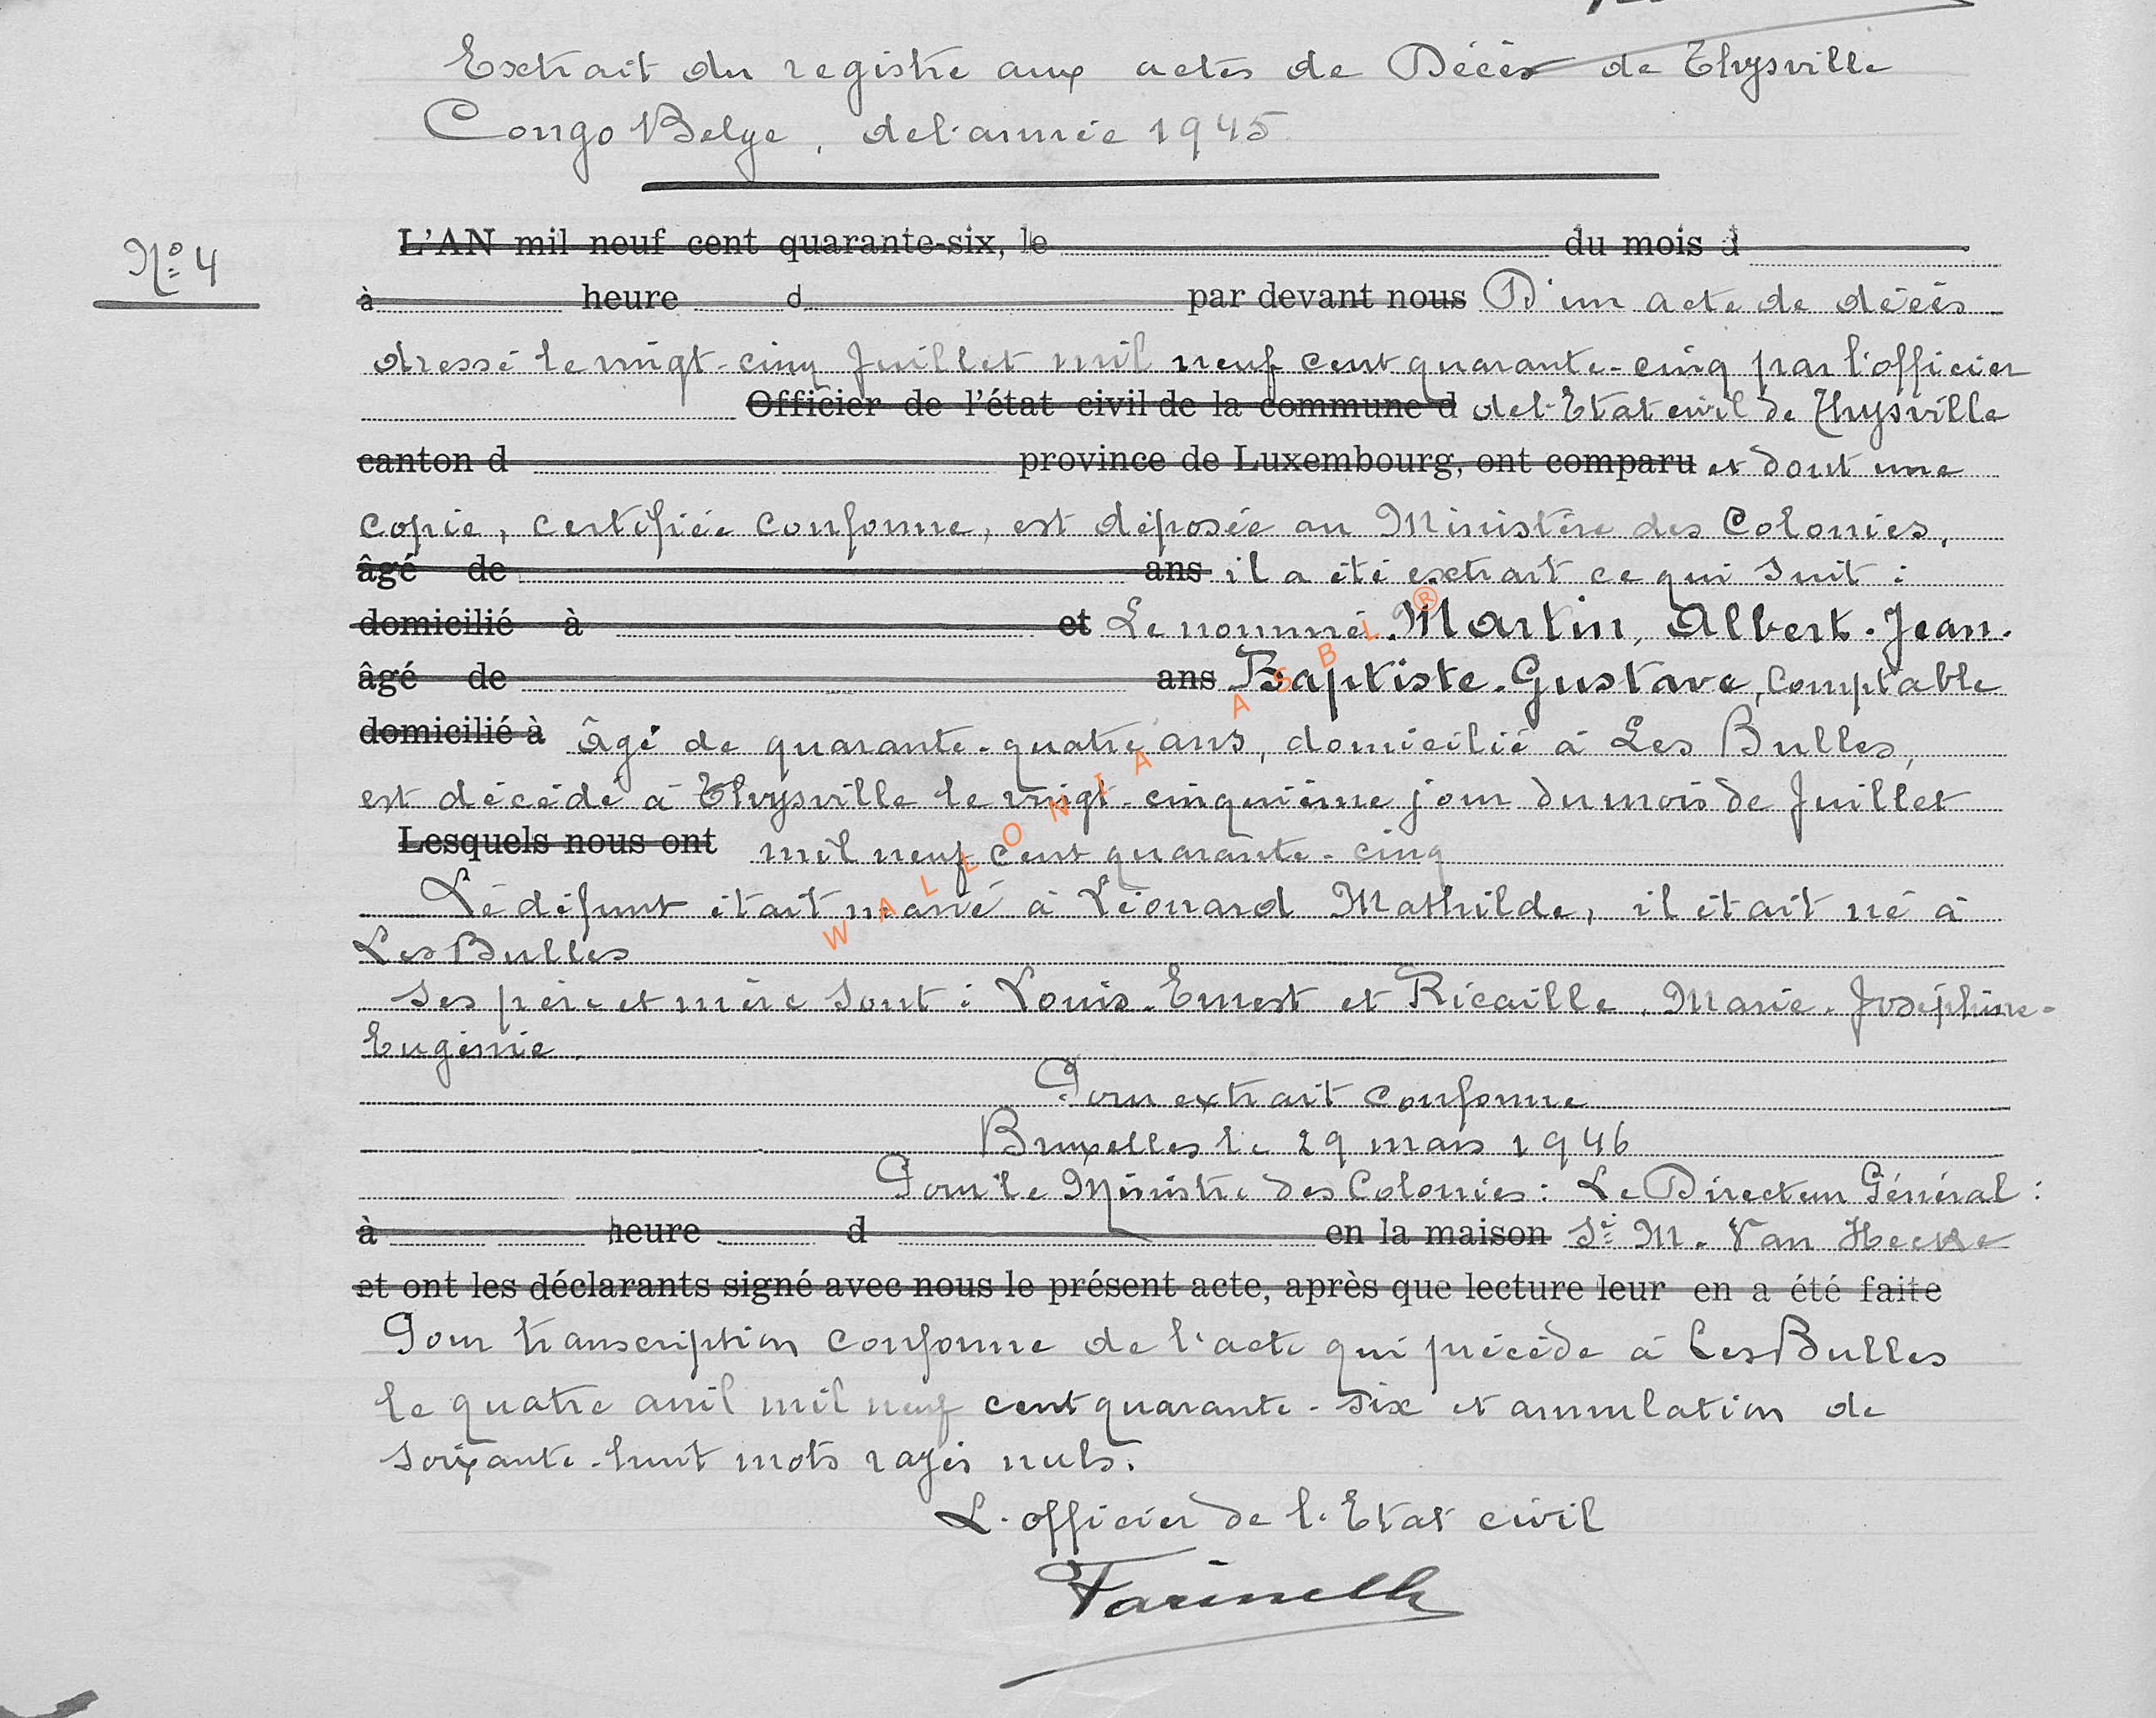 Extrait du registre aux actes de Décès de Thysville
Congo Belge, de l'année 1945
N° 4
L'AN mil neuf cent quarante-six, le du mois d
à heure d par devant nous D'un acte de décès
dressé le vingt-cinq Juillet mil neuf cent quarante-cinq par l'officier
Officier de l'état civil de la commune d de l'Etat civil de Thysville
canton d province de Luxembourg, ont comparu et dont une
copie, certifiée conforme, est déposée au Ministère des Colonies,
âgé de ans il a été extrait ce qui suit :
domicilié à et Le nommé Martin, Albert-Jean-
âgé de ans Baptiste-Gustave, Comptable
domicilié à âgé de quarante-quatre ans, domicilié à Les Bulles,
est décédé à Thysville le vingt-cinquième jour du mois de Juillet
Lesquels nous ont mil neuf cent quarante-cinq
Le défunt était marié à Léonard Mathilde, il était né à
Les Bulles
Ses père et mère sont : Louis-Ernest et Ricaille, Marie-Joséphine-
Eugénie.
Pour extrait conforme
Bruxelles le 29 mars 1946
Pour le Ministre des Colonies : Le Directeur Général :
à heure d en la maison Sé M. Van Hecke
et ont les déclarants signé avec nous le présent acte, après que lecture leur en a été faite
Pour transcription conforme de l'acte qui précède à Les Bulles
le quatre avril mil neuf cent quarante-six et annulation de
soixante-huit mots rayés nuls.
L'officier de l'Etat civil
WALLONIA ASBL ®